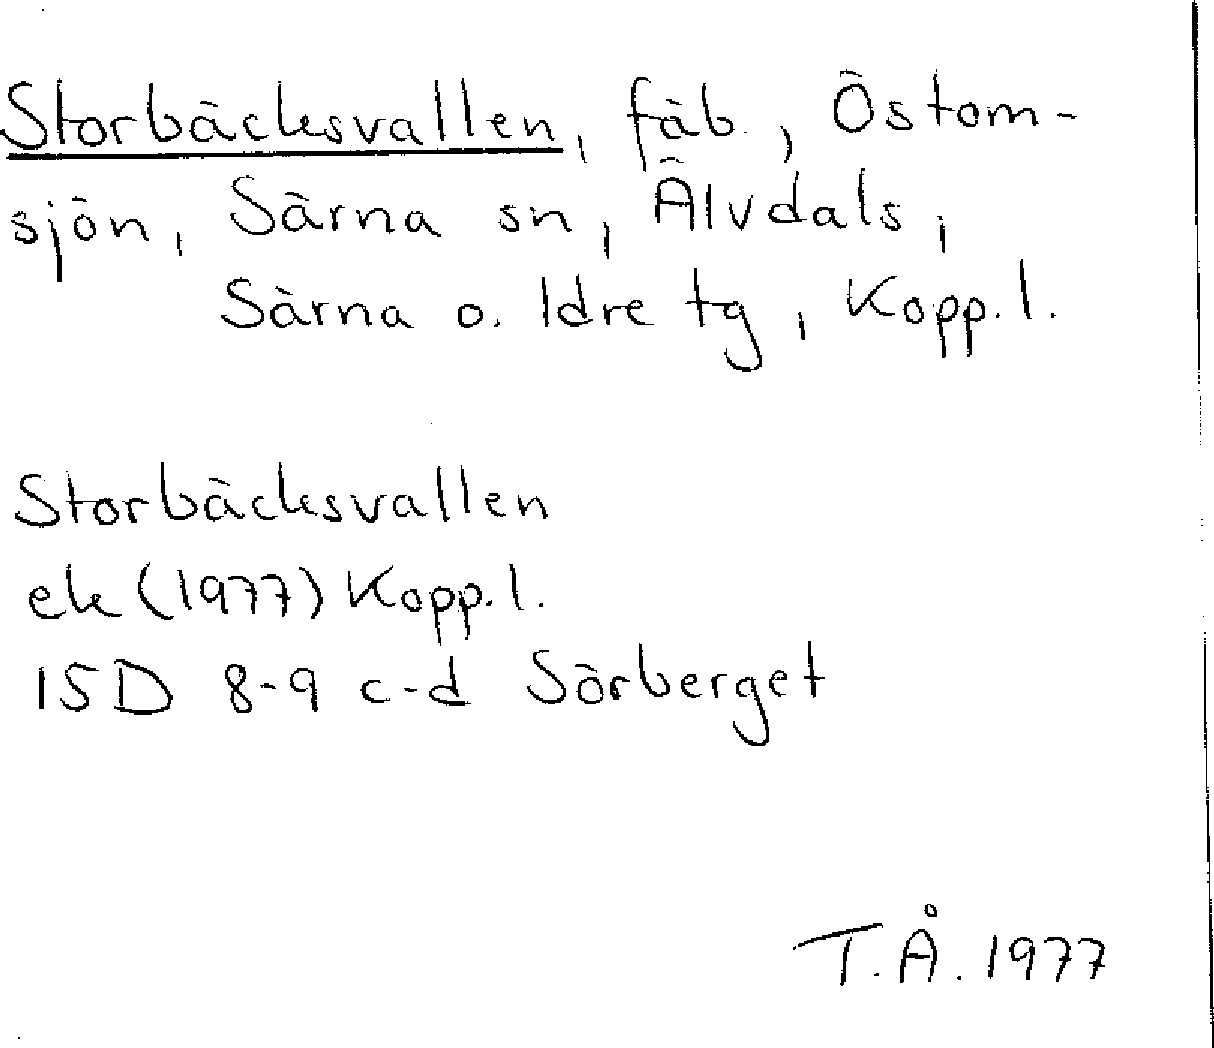 Storbäcksvallen, fäb., Östom-
sjön, Särna sn, Älvdals,
Särna o. Idre tg, Kopp. l.
Storbäcksvallen
ek (1977) Kopp. l.
15D 8-9 c-d Sörberget
T.Å. 1977